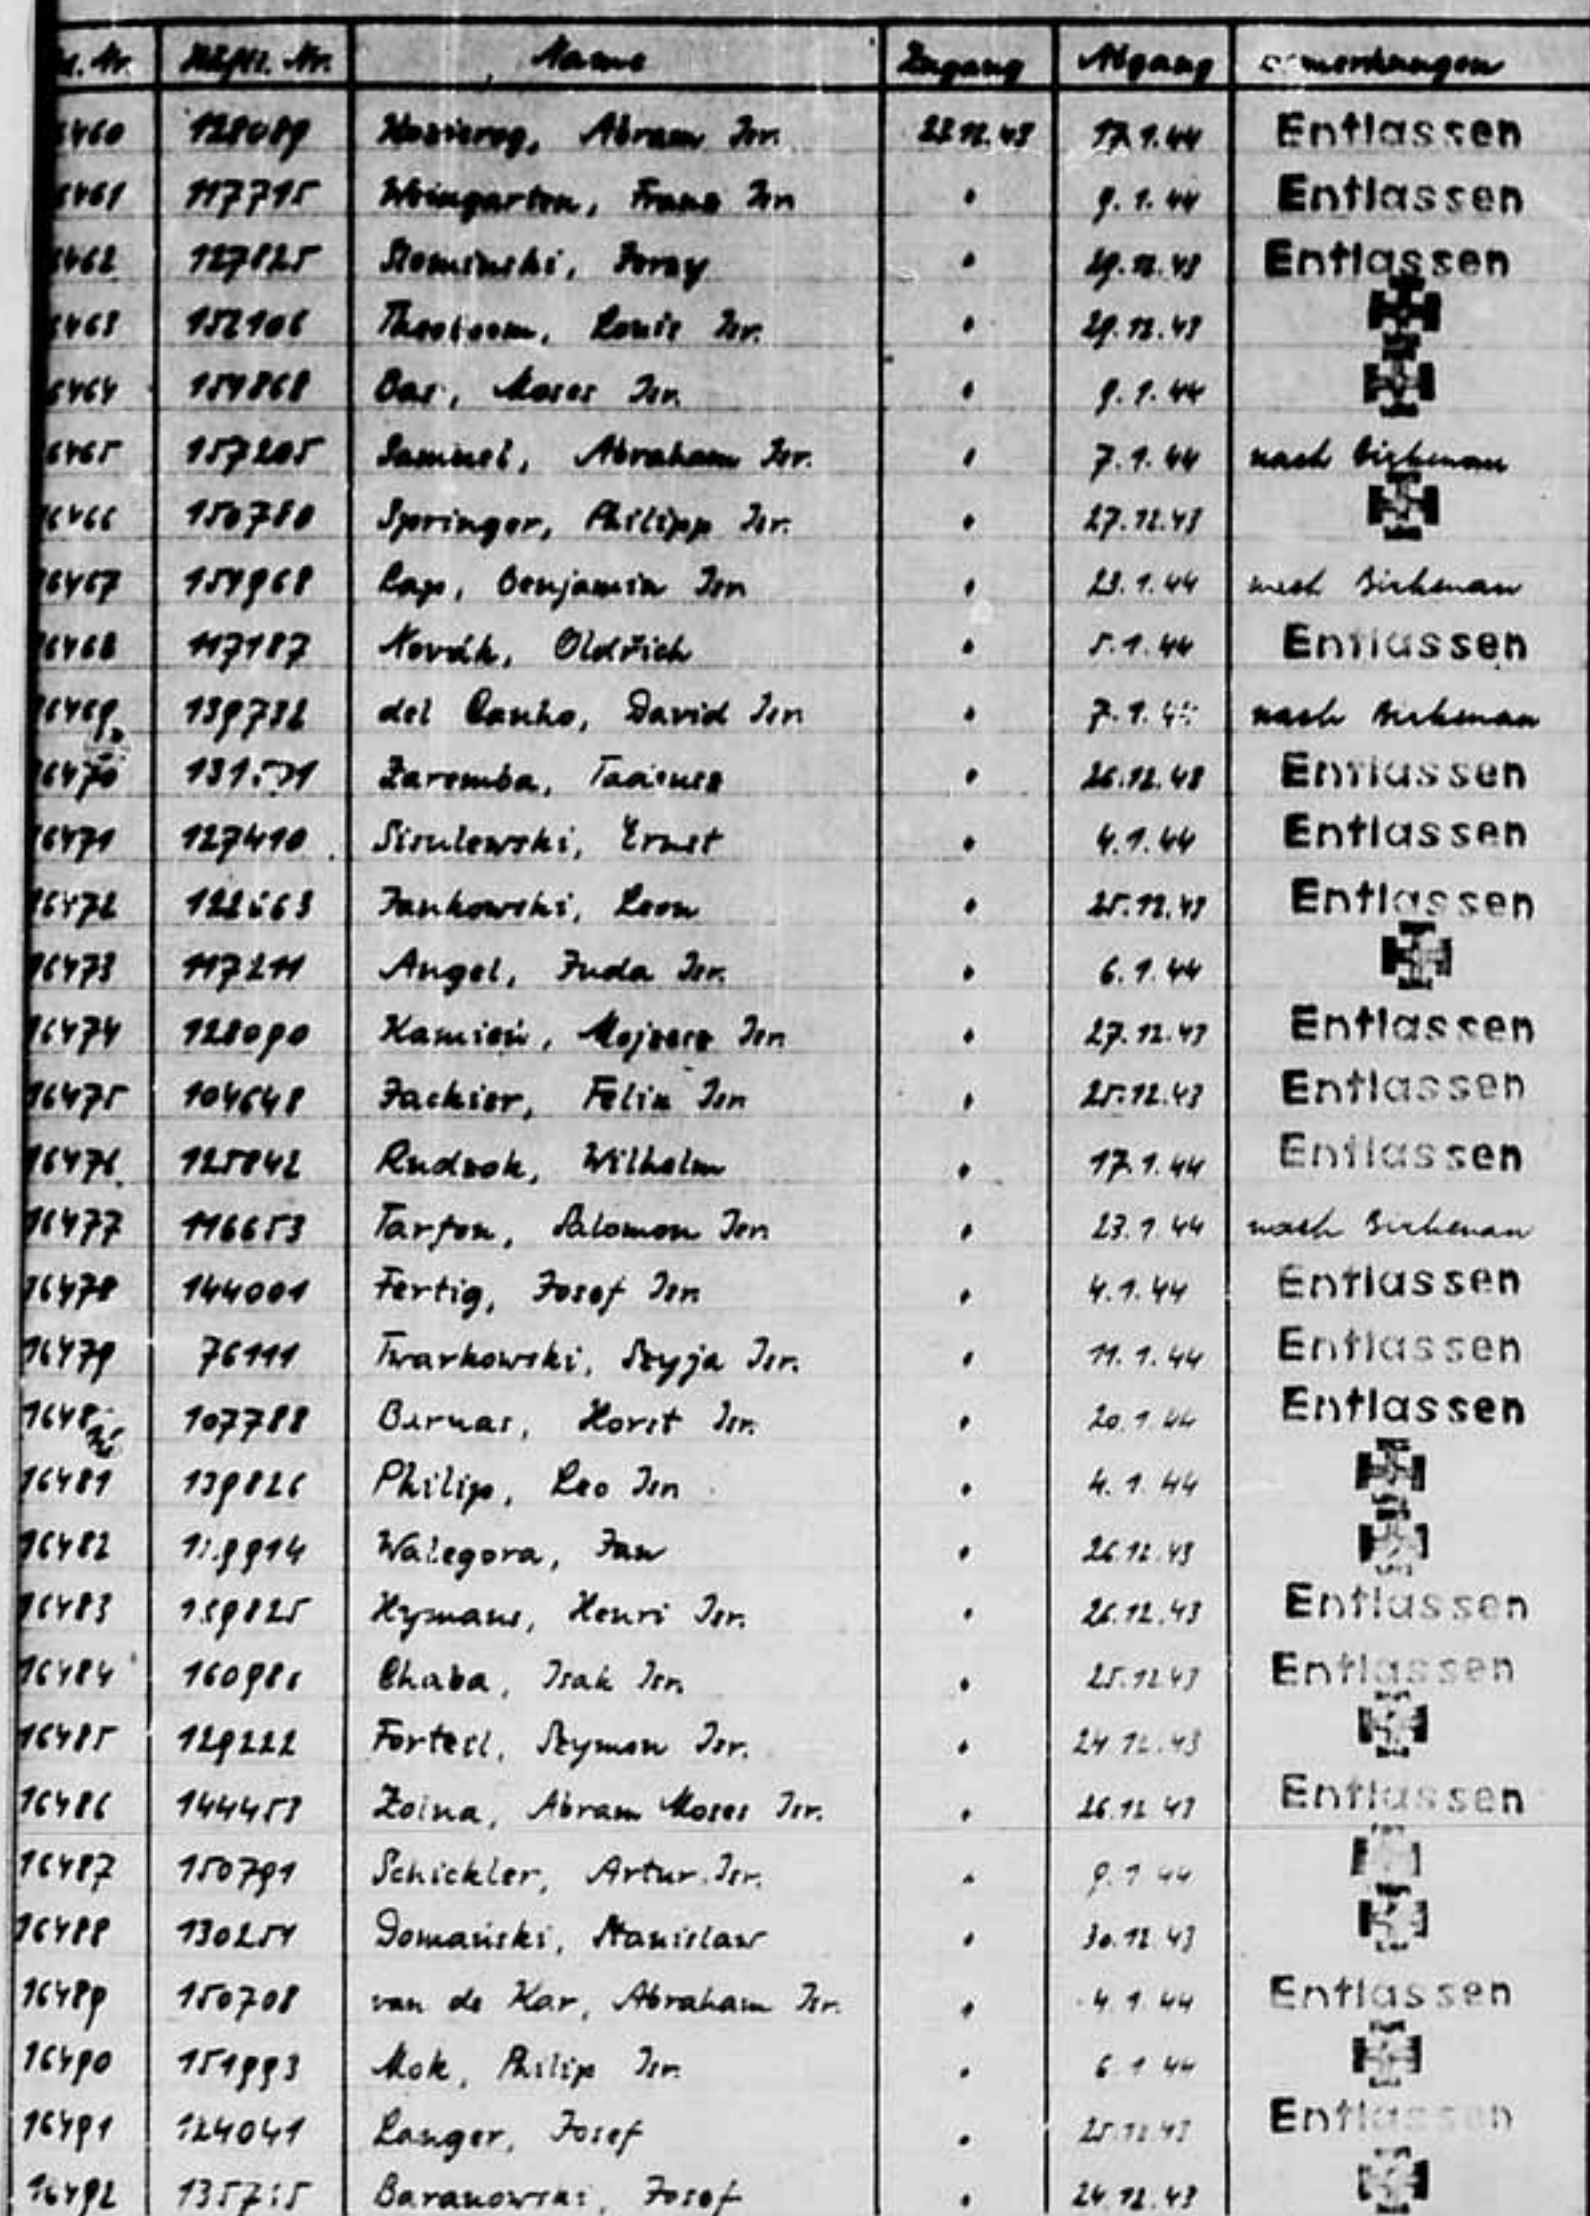 Häftl. Nr. Name Zugang Abgang Bemerkungen
128089 Abram Isr. 22.12.43 17.1.44 Entlassen
117715 Weingarten, Franz Isr. " 9.1.44 Entlassen
127825 " 29.12.43 Entlassen
152106 Louis Isr. " 29.12.43
Moses Isr. " 9.1.44
157205 Sammel, Abraham Isr. " 7.1.44 nach Birkenau
150780 Springer, Philipp Isr. " 27.12.43
16467 Lap, Benjamin Isr. " 23.1.44 nach Birkenau
117187 Novák, Oldřich " 5.1.44 Entlassen
139732 David Isr. " 7.1. nach Birkenau
Zaremba, " 26.12.43 Entlassen
16471 127410 Ernst " 4.1.44 Entlassen
16472 Jankowski, Leon " 25.12.43 Entlassen
16473 117211 Angel, Juda Isr. " 6.1.44
16474 128090 Kamień, Isr. " 27.12.43 Entlassen
16475 104648 Felix Isr. " 25.12.43 Entlassen
16476 125842 Wilhelm " 17.1.44 Entlassen
16477 116653 Salomon Isr. " 23.1.44 nach Birkenau
16478 144001 Fertig, Josef Isr. " 4.1.44 Entlassen
16479 76111 Twarkowski, Isr. " 11.1.44 Entlassen
107788 Horst Isr. " 20.1.44 Entlassen
16481 139826 Philip, Leo Isr. " 4.1.44
16482 Walegora, Jan " 26.12.43
16483 139825 Hymans, Henri Isr. " 26.12.43 Entlassen
16484 Isak Isr. " 25.12.43 Entlassen
16485 129222 Szymon Isr. " 24.12.43
16486 144453 Abram Moses Isr. " 26.12.43 Entlassen
16487 150791 Schickler, Artur Isr. " 9.1.44
16488 130251 Domański, Stanislaw " 30.12.43
16489 150708 van de Kar, Abraham Isr. " 4.1.44 Entlassen
16490 151993 Mok, Philip Isr. " 6.1.44
16491 124041 Langer, Josef " 25.12.43 Entlassen
16492 Baranowski, Josef " 24.12.43